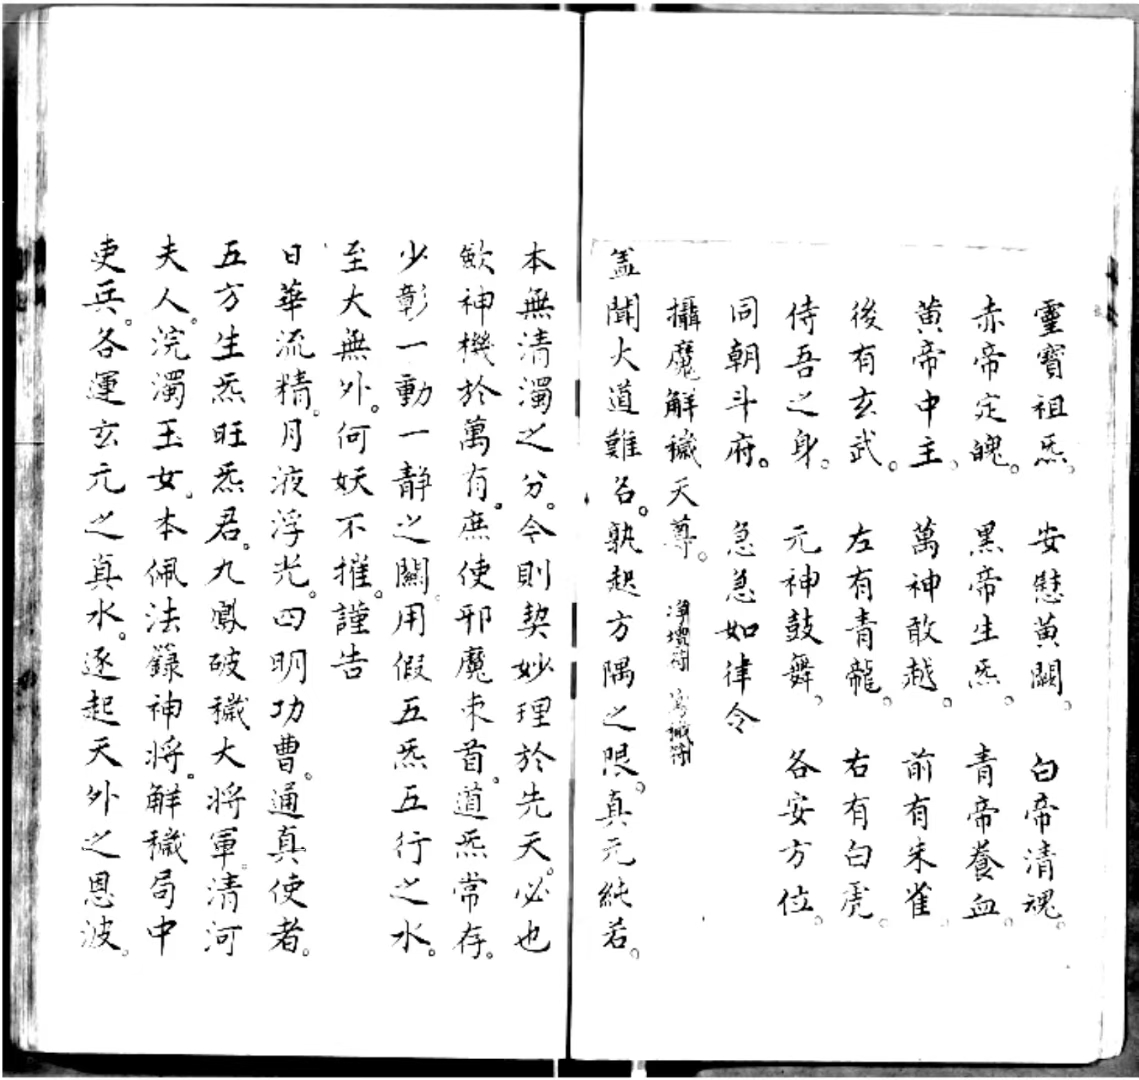 靈寶祖炁。安慰黃闕。白帝清魂。
赤帝定魄。黑帝生炁。青帝養血。
黃帝中主。萬神敢越。前有朱雀
後有玄武。左有青龍。右有白虎。
侍吾之身。元神鼓舞。各安方位。
同朝斗府。急急如律令
攝魔解穢天尊。淨壇符 穢符
盖聞大道難名。孰起方隅之限。真元純若。
本無清濁之分。今則契妙理於先天。必也
歛神機於萬有。庶使邪魔束首。道炁常存。
少彰一動一靜之關。用假五炁五行之水。
至大無外。何妖不摧。謹告
日華流精。月液浮光。四明功曹。通真使者。
五方生炁旺炁君。九鳳破穢大將軍。清河
夫人。浣濁玉女。本佩法籙神將。解穢局中
吏兵。各運玄元之真水。逐起天外之恩波。